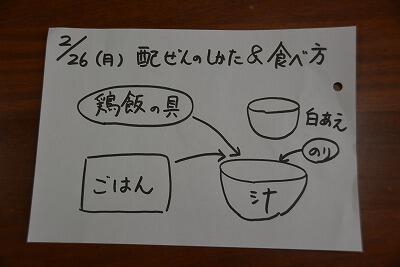 2/26(月) 配ぜんのしかた&食べ方
鶏飯の具
白あえ
のり
ごはん
汁